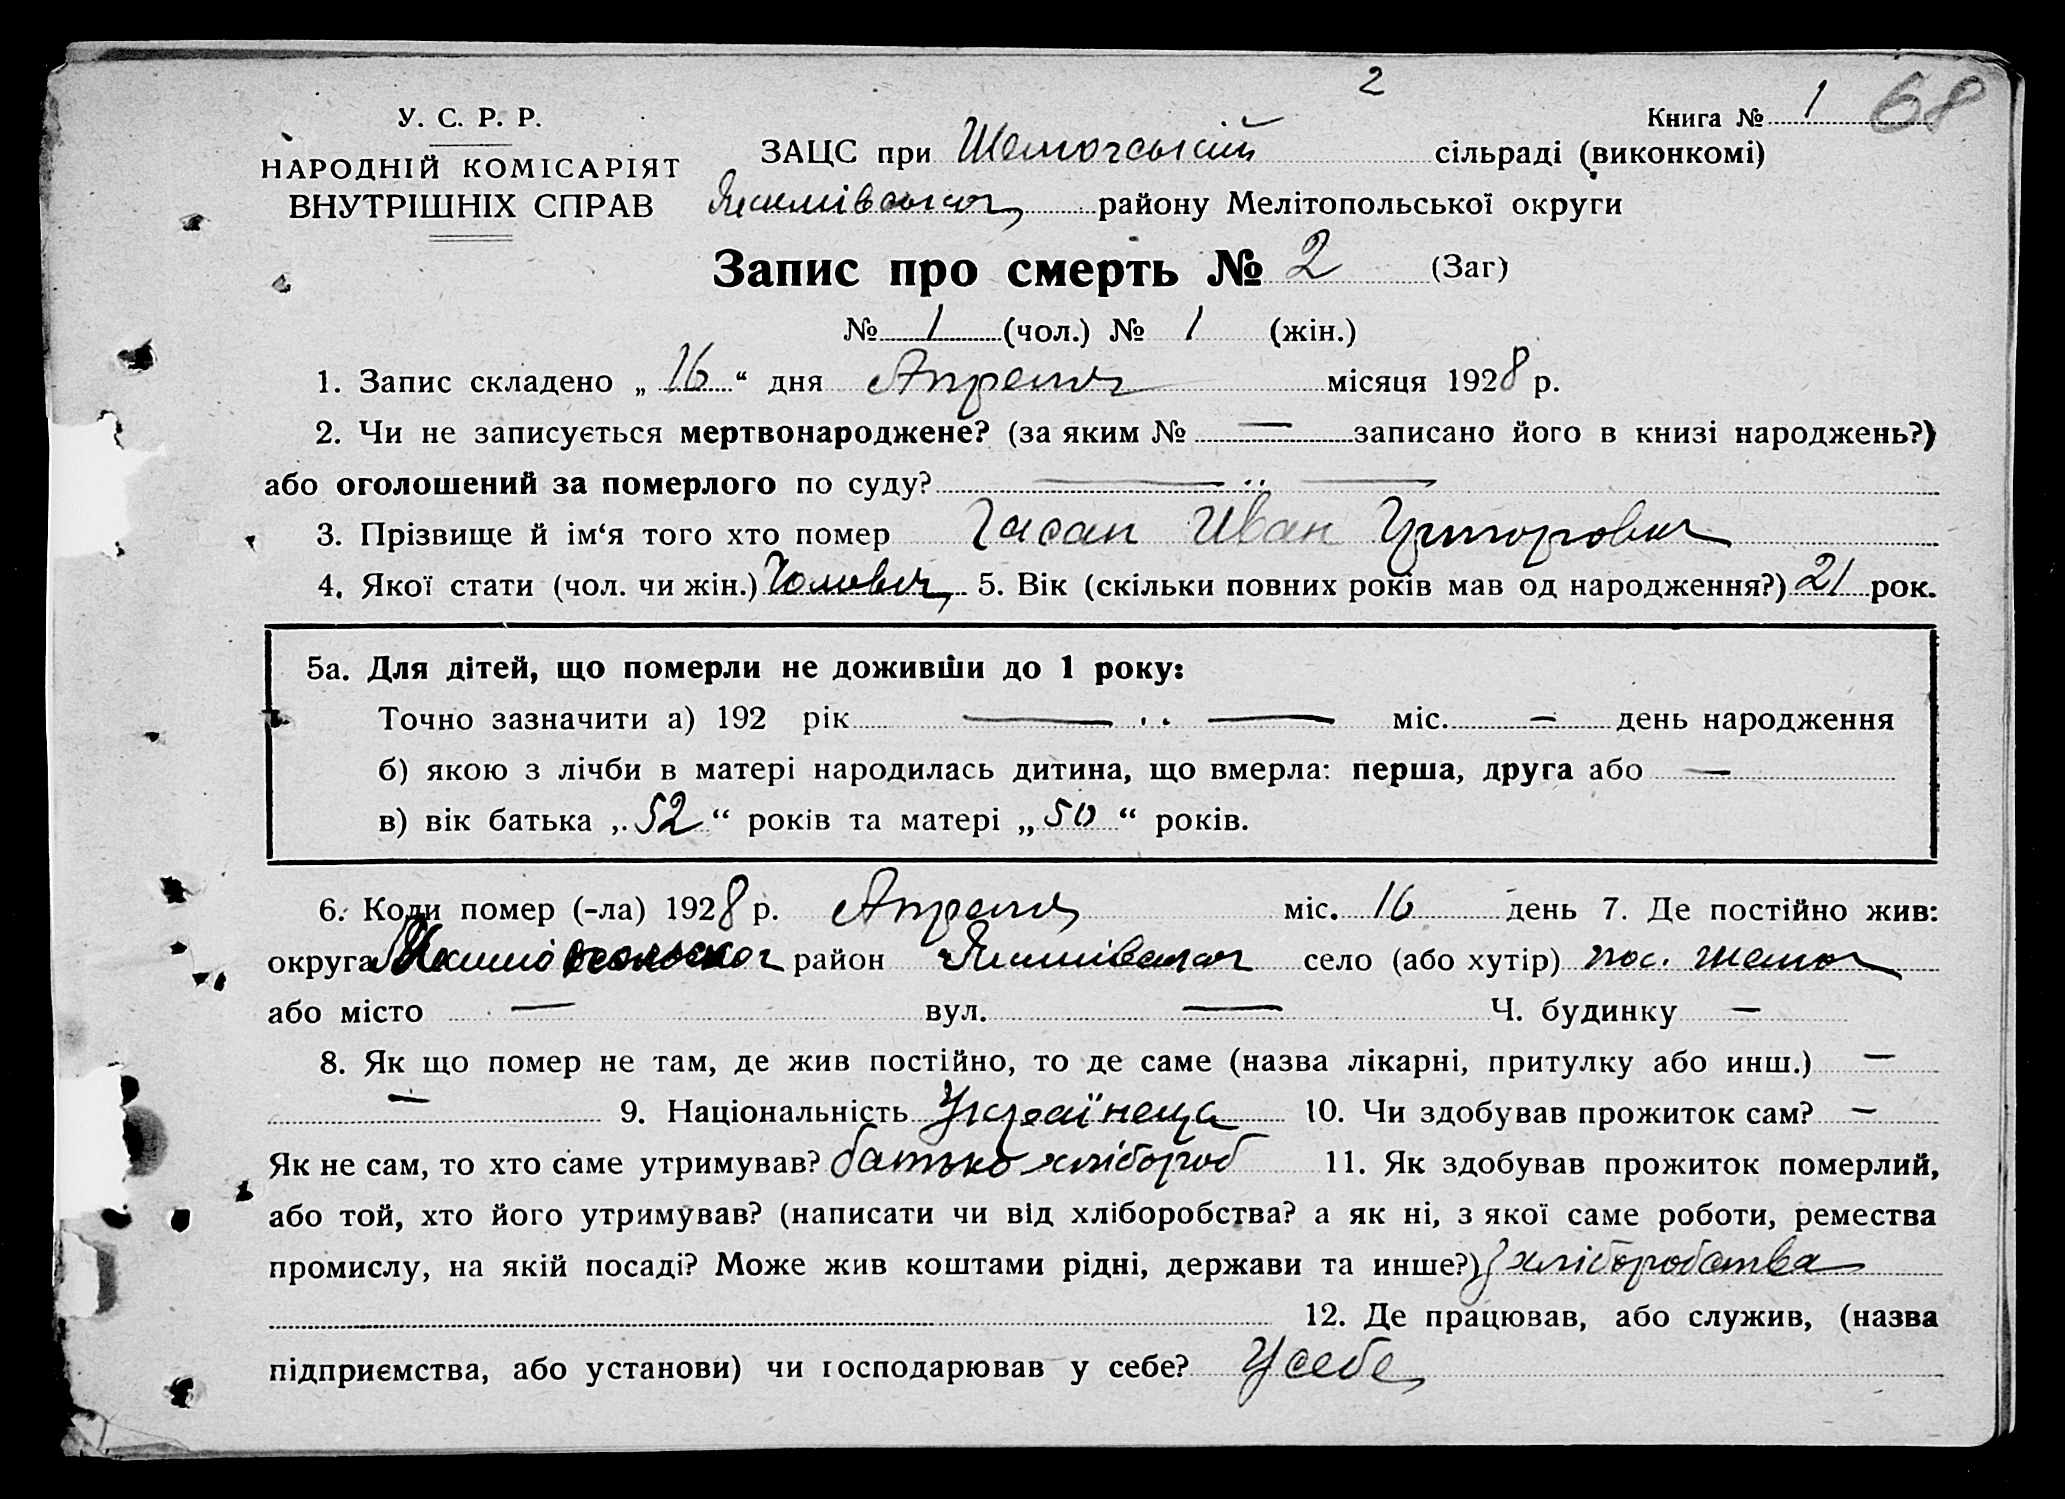 2
У. С. Р. Р.
Книга № 1 68
НАРОДНІЙ КОМІСАРІЯТ
ВНУТРІШНІХ СПРАВ
ЗАЦС при сільраді (виконкомі)
району Мелітопольської округи
Запис про смерть № 2 (Заг)
№ 1 (чол.) № 1 (жін.)
1. Запис складено „ 16 “ дня Апреля місяця 1928 р.
2. Чи не записується мертвонароджене? (за яким № — записано його в книзі народжень?)
або оголошений за померлого по суду? — ·· —
3. Прізвище й ім‘я того хто помер Іван Григорович
4. Якої стати (чол. чи жін.) Чоловіч 5. Вік (скільки повних років мав од народження?) 21 рок.
5а. Для дітей, що померли не доживши до 1 року:
Точно зазначити а) 192 рік — ·· — міс. — день народження
б) якою з лічби в матері народилась дитина, що вмерла: перша, друга або —
в) вік батька „ 52 “ років та матері „ 50 “ років.
6. Коли помер (-ла) 1928 р. Апреля міс. 16 день 7. Де постійно жив:
округа район Якимівськог село (або хутір) пос.
або місто — вул. — Ч. будинку —
8. Як що помер не там, де жив постійно, то де саме (назва лікарні, притулку або инш.) —
— 9. Національність Українець 10. Чи здобував прожиток сам? —
Як не сам, то хто саме утримував? батько хлібороб 11. Як здобував прожиток померлий,
або той, хто його утримував? (написати чи від хліборобства? а як ні, з якої саме роботи, ремества
промислу, на якій посаді? Може жив коштами рідні, держави та инше?) з хліборобства
12. Де працював, або служив, (назва
підприємства, або установи) чи господарював у себе? У себе